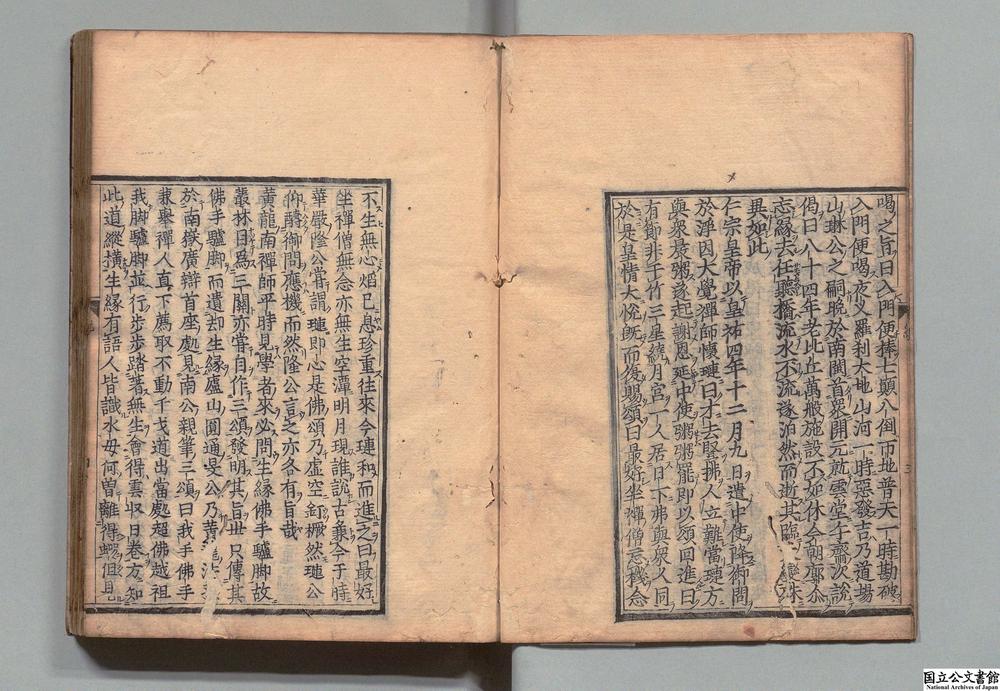 喝之旨曰入門便棒七顛八倒帀地普天一時勘破
入門便喝夜叉羅刹大地山河一時惡發吉乃道場
山琳公之嗣晩於南閩首衆開元就雲堂千齋次說
偈曰八十四年老比丘萬般施設不如休今朝廓尒
忘縁去任聽橋流水不流遂泊然而逝其臨 變殊
異如此
仁宗皇帝以皇祐四年十二月九日遣中使降御問
於淨因大覺禪師懷璉曰才去竪拂人立難當璉方
與衆晨粥遂起謝恩延中使粥粥罷即以頌回進曰
有節非干竹三星繞月宮一人居日下弗與衆人同
於是皇情大悅既而復賜頌曰最好坐禪僧忘機念
不生無心焰已息珍重往來今璉和而進之曰最好
坐禪僧無念亦無生空潭明月現誰說古兼今于時
華嚴隆公嘗謂璉即心是佛頌乃虛空釘橛然璉公
仰醻御問應機而然隆公言之亦各有旨哉
黄龍南禪師平時見學者來必問生縁佛手驢脚故
叢林目爲三關亦嘗自作三頌發明其旨丗只傳其
佛手驢脚而遺却生縁廬山圓通旻公乃黄
於南嶽廣辯首座處見南公親筆三頌曰我手佛手
兼舉禪人直下薦取不動干戈道出當處超佛越祖
我脚驢脚並行步步踏著無生會得雲収日卷方知
此道縱横生縁有語人皆識水母何曽離得蝦但見
国立公文書館
National Archives of Japan